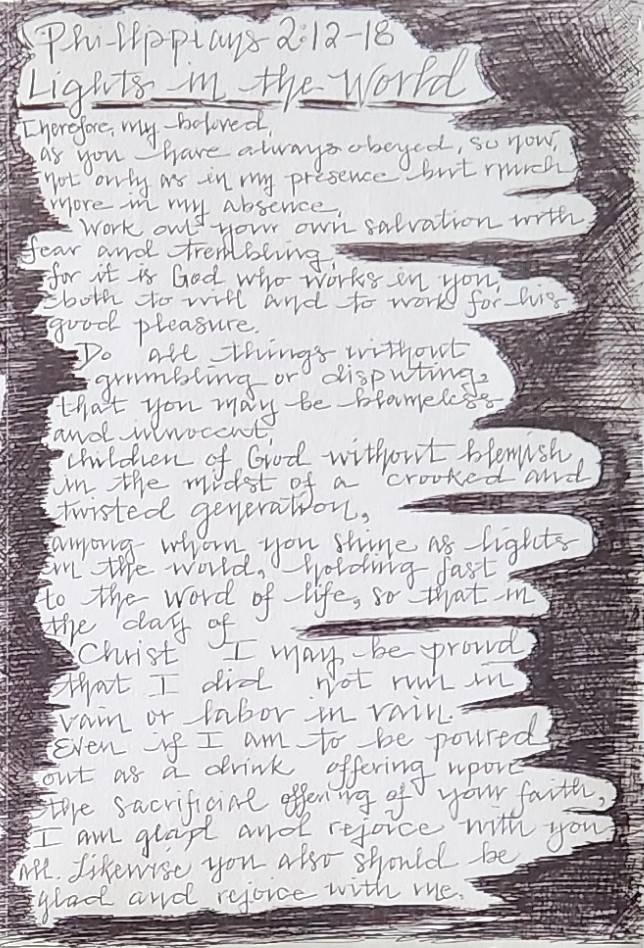 Philippians 2:12-18
Lights in the World
Therefore, my beloved,
as you have always obeyed, so now,
not only as in my presence but much
more in my absence,
work out your own salvation with
fear and trembling,
for it is God who works in you,
both to will and to work for his
good pleasure.
Do all things without
grumbling or disputing,
that you may be blameless
and innocent,
children of God without blemish
in the midst of a crooked and
twisted generation,
among whom you shine as lights
in the world, holding fast
to the word of life, so that in
the day of
Christ I may be proud
that I did not run in
vain or labor in vain.
Even if I am to be poured
out as a drink offering upon
the sacrificial offering of your faith,
I am glad and rejoice with you
all. Likewise you also should be
glad and rejoice with me.